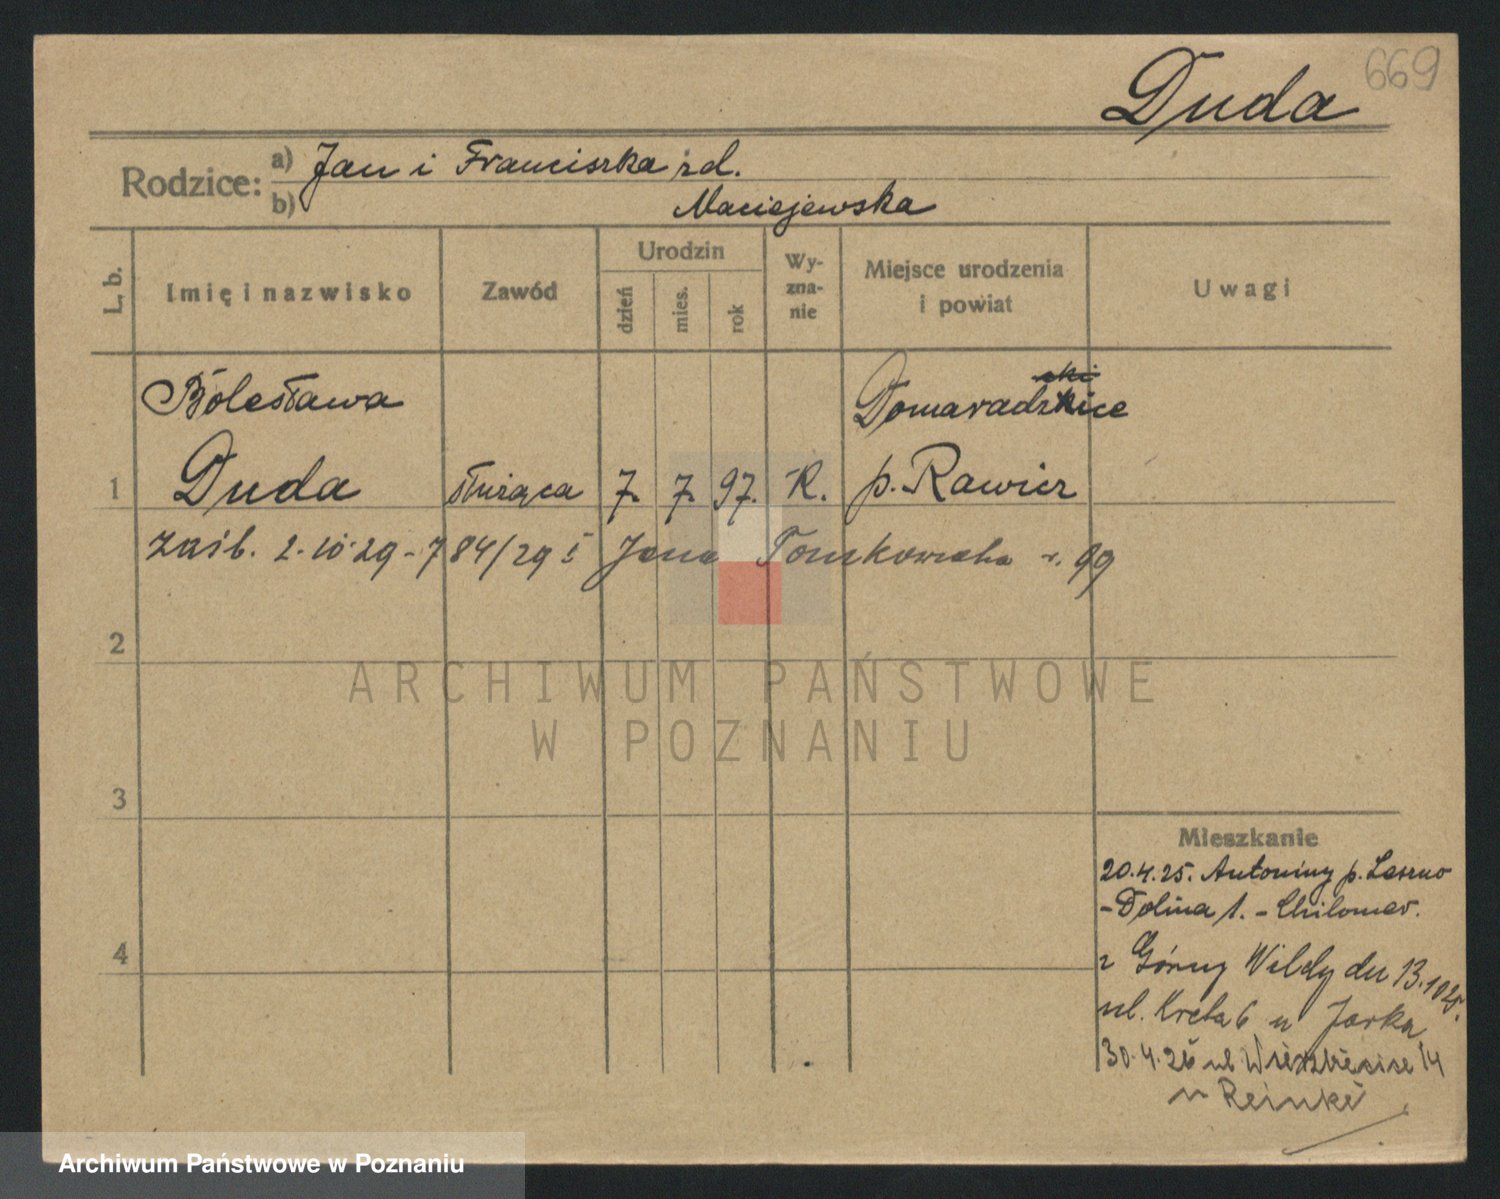 669
Duda
Rodzice: a) Jan i Franciszka zd.
b) Maciejewska
L. b.
Imię i nazwisko
Zawód
Urodzin
dzień
mies.
rok
Wy-
zna-
nie
Miejsce urodzenia
i powiat
Uwagi
Bolesława
Domaradzice
1 Duda służąca 7. 7. 97. R. p. Rawicz
zaśb. 2.10.29 - 784/29 Jana r. 99
2
ARCHIWUM PAŃSTWOWE
W POZNANIU
3
Mieszkanie
20.4.25. Antoniny p. Leszno
- Dolina 1. -
z Górny Wildy dn 13.10.25.
ul. Kreta 6 u Jarka
4
30.4.26 ul Wierzbięcice 14
u Reinke
Archiwum Państwowe w Poznaniu